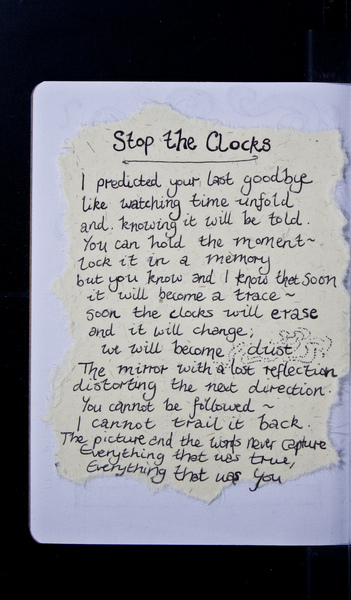 Stop the Clocks
I predicted your last goodbye
like watching time unfold
and knowing it will be told.
You can hold the moment~
lock it in a memory
but you know and I know that soon
it will become a trace~
soon the clocks will erase
and it will change;
we will become dust
The mirror with a lost reflection
distorting the next direction.
You cannot be followed ~
I cannot trail it back.
The picture and the words never capture
Everything that was true,
Everything that was you